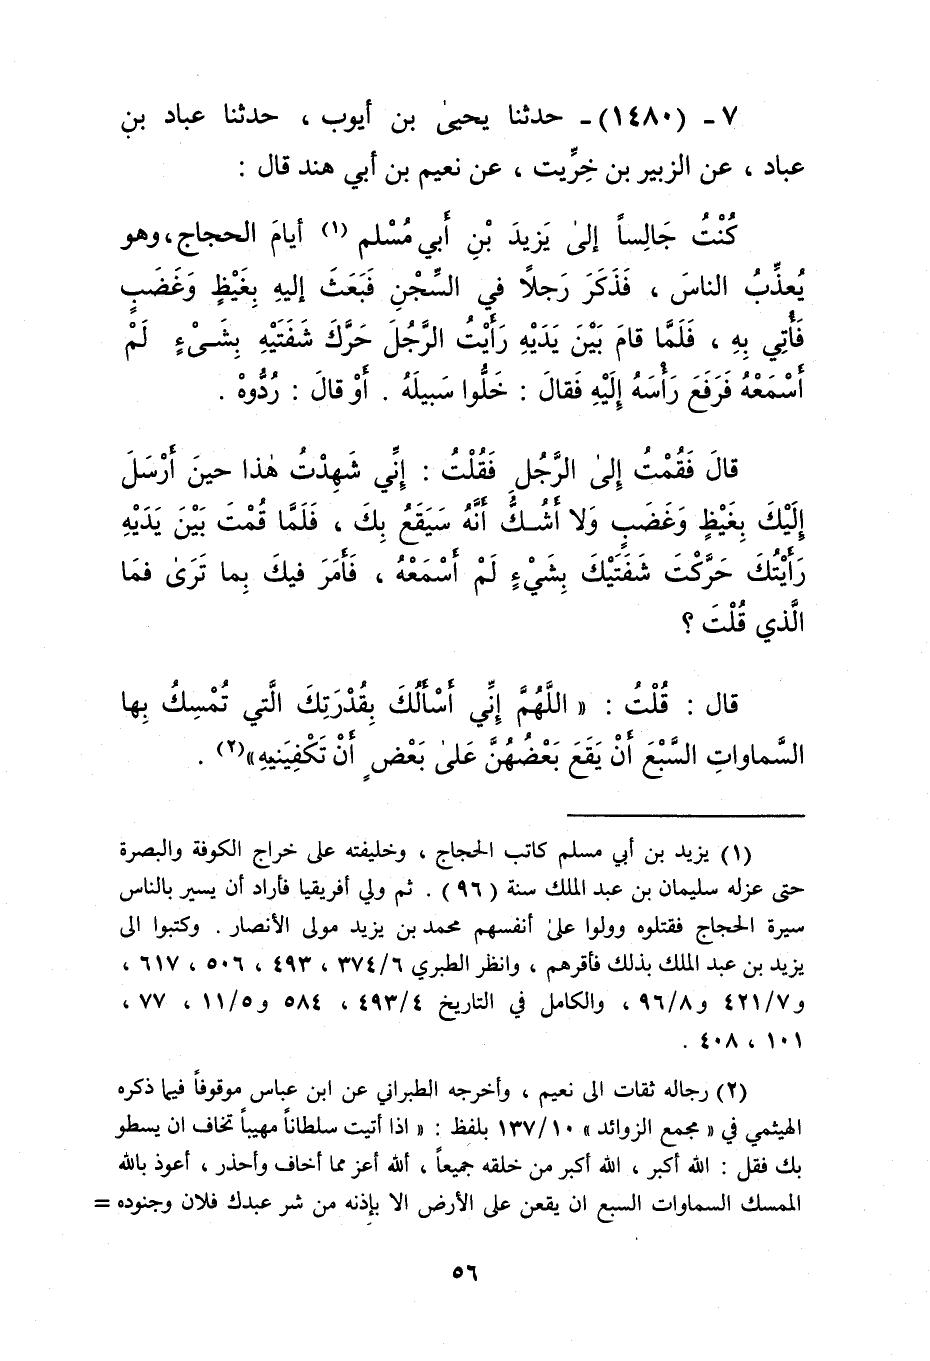 ٧ ـ (١٤٨٠) ـ حدثنا يحيىٰ بن أيوب ، حدثنا عباد بنِ
عباد ، عن الزبير بن خِرِّيت ، عن نعيم بن أبي هند قال :
كُنْتُ جَالِساً إلىٰ يَزِيدَ بْنِ أَبي مُسْلم (١) أيامَ الحجاج، وهو
يُعذِّبُ الناسَ ، فَذَكَرَ رَجلاً في السِّجْنِ فَبَعَثَ إليهِ بِغَيْظٍ وَغَضَبٍ
فَأُتِي بِهِ ، فَلَمَّا قامَ بَيْنَ يَدَيْهِ رَأَيْتُ الرَّجُلَ حَرَّكَ شَفَتَيْهِ بِشَىْءٍ لَمْ
أَسْمَعْهُ فَرَفَعَ رَأْسَهُ إِلَيْهِ فَقالَ : خَلُّوا سَبيلَهُ . أَوْ قالَ : رُدُّوهْ .
قالَ فَقُمْتُ إلىٰ الرَّجُلِ فَقُلْتُ : إنِّي شَهِدْتُ هٰذا حينَ أَرْسَلَ
إلَيْكَ بِغَيْظٍ وَغَضَبٍ وَلا أَشُكُّ أَنَّهُ سَيَقَعُ بِكَ ، فَلَمَّا قُمْتَ بَيْنَ يَدَيْهِ
رَأَيْتُكَ حَرَّكْتَ شَفَتَيْكَ بِشَيْءٍ لَمْ أَسْمَعْهُ ، فَأَمَرَ فيكَ بِما تَرَىٰ فمَا
الَّذي قُلْتَ ؟
قال : قُلْتُ : « اللَّهُمَّ إنِّي أَسْأَلُكَ بِقُدْرَتِكَ الَّتي تُمْسِكُ بِها
السَّماواتِ السَّبْعَ أَنْ يَقَعَ بَعْضُهُنَّ عَلىٰ بَعْضٍ أَنْ تَكْفِيَنِيهِ»(٢) .
(١) يزيد بن أبي مسلم كاتب الحجاج ، وخليفته على خراج الكوفة والبصرة
حتى عزله سليمان بن عبد الملك سنة ( ٩٦ ) . ثم ولي أفريقيا فأراد أن يسير بالناس
سيرة الحجاج فقتلوه وولوا علىٰ أنفسهم محمد بن يزيد مولى الأنصار . وكتبوا الى
يزيد بن عبد الملك بذلك فأقرهم ، وانظر الطبري ٣٧٤/٦ ، ٤٩٣ ، ٥٠٦ ، ٦١٧ ،
و٤٢١/٧ و٩٦/٨ ، والكامل في التاريخ ٤٩٣/٤ ، ٥٨٤ و١١/٥ ، ٧٧ ،
١٠١ ، ٤٠٨ .
(٢) رجاله ثقات الى نعيم ، وأخرجه الطبراني عن ابن عباس موقوفاً فيما ذكره
الهيثمي في « مجمع الزوائد » ١٣٧/١٠ بلفظ : « اذا أتيت سلطاناً مهيباً تخاف ان يسطو
بك فقل : الله أكبر ، الله أكبر من خلقه جميعاً ، ألله أعز مما أخاف وأحذر ، أعوذ بالله
الممسك السماوات السبع ان يقعن على الأرض الا بإذنه من شر عبدك فلان وجنوده =
٥٦